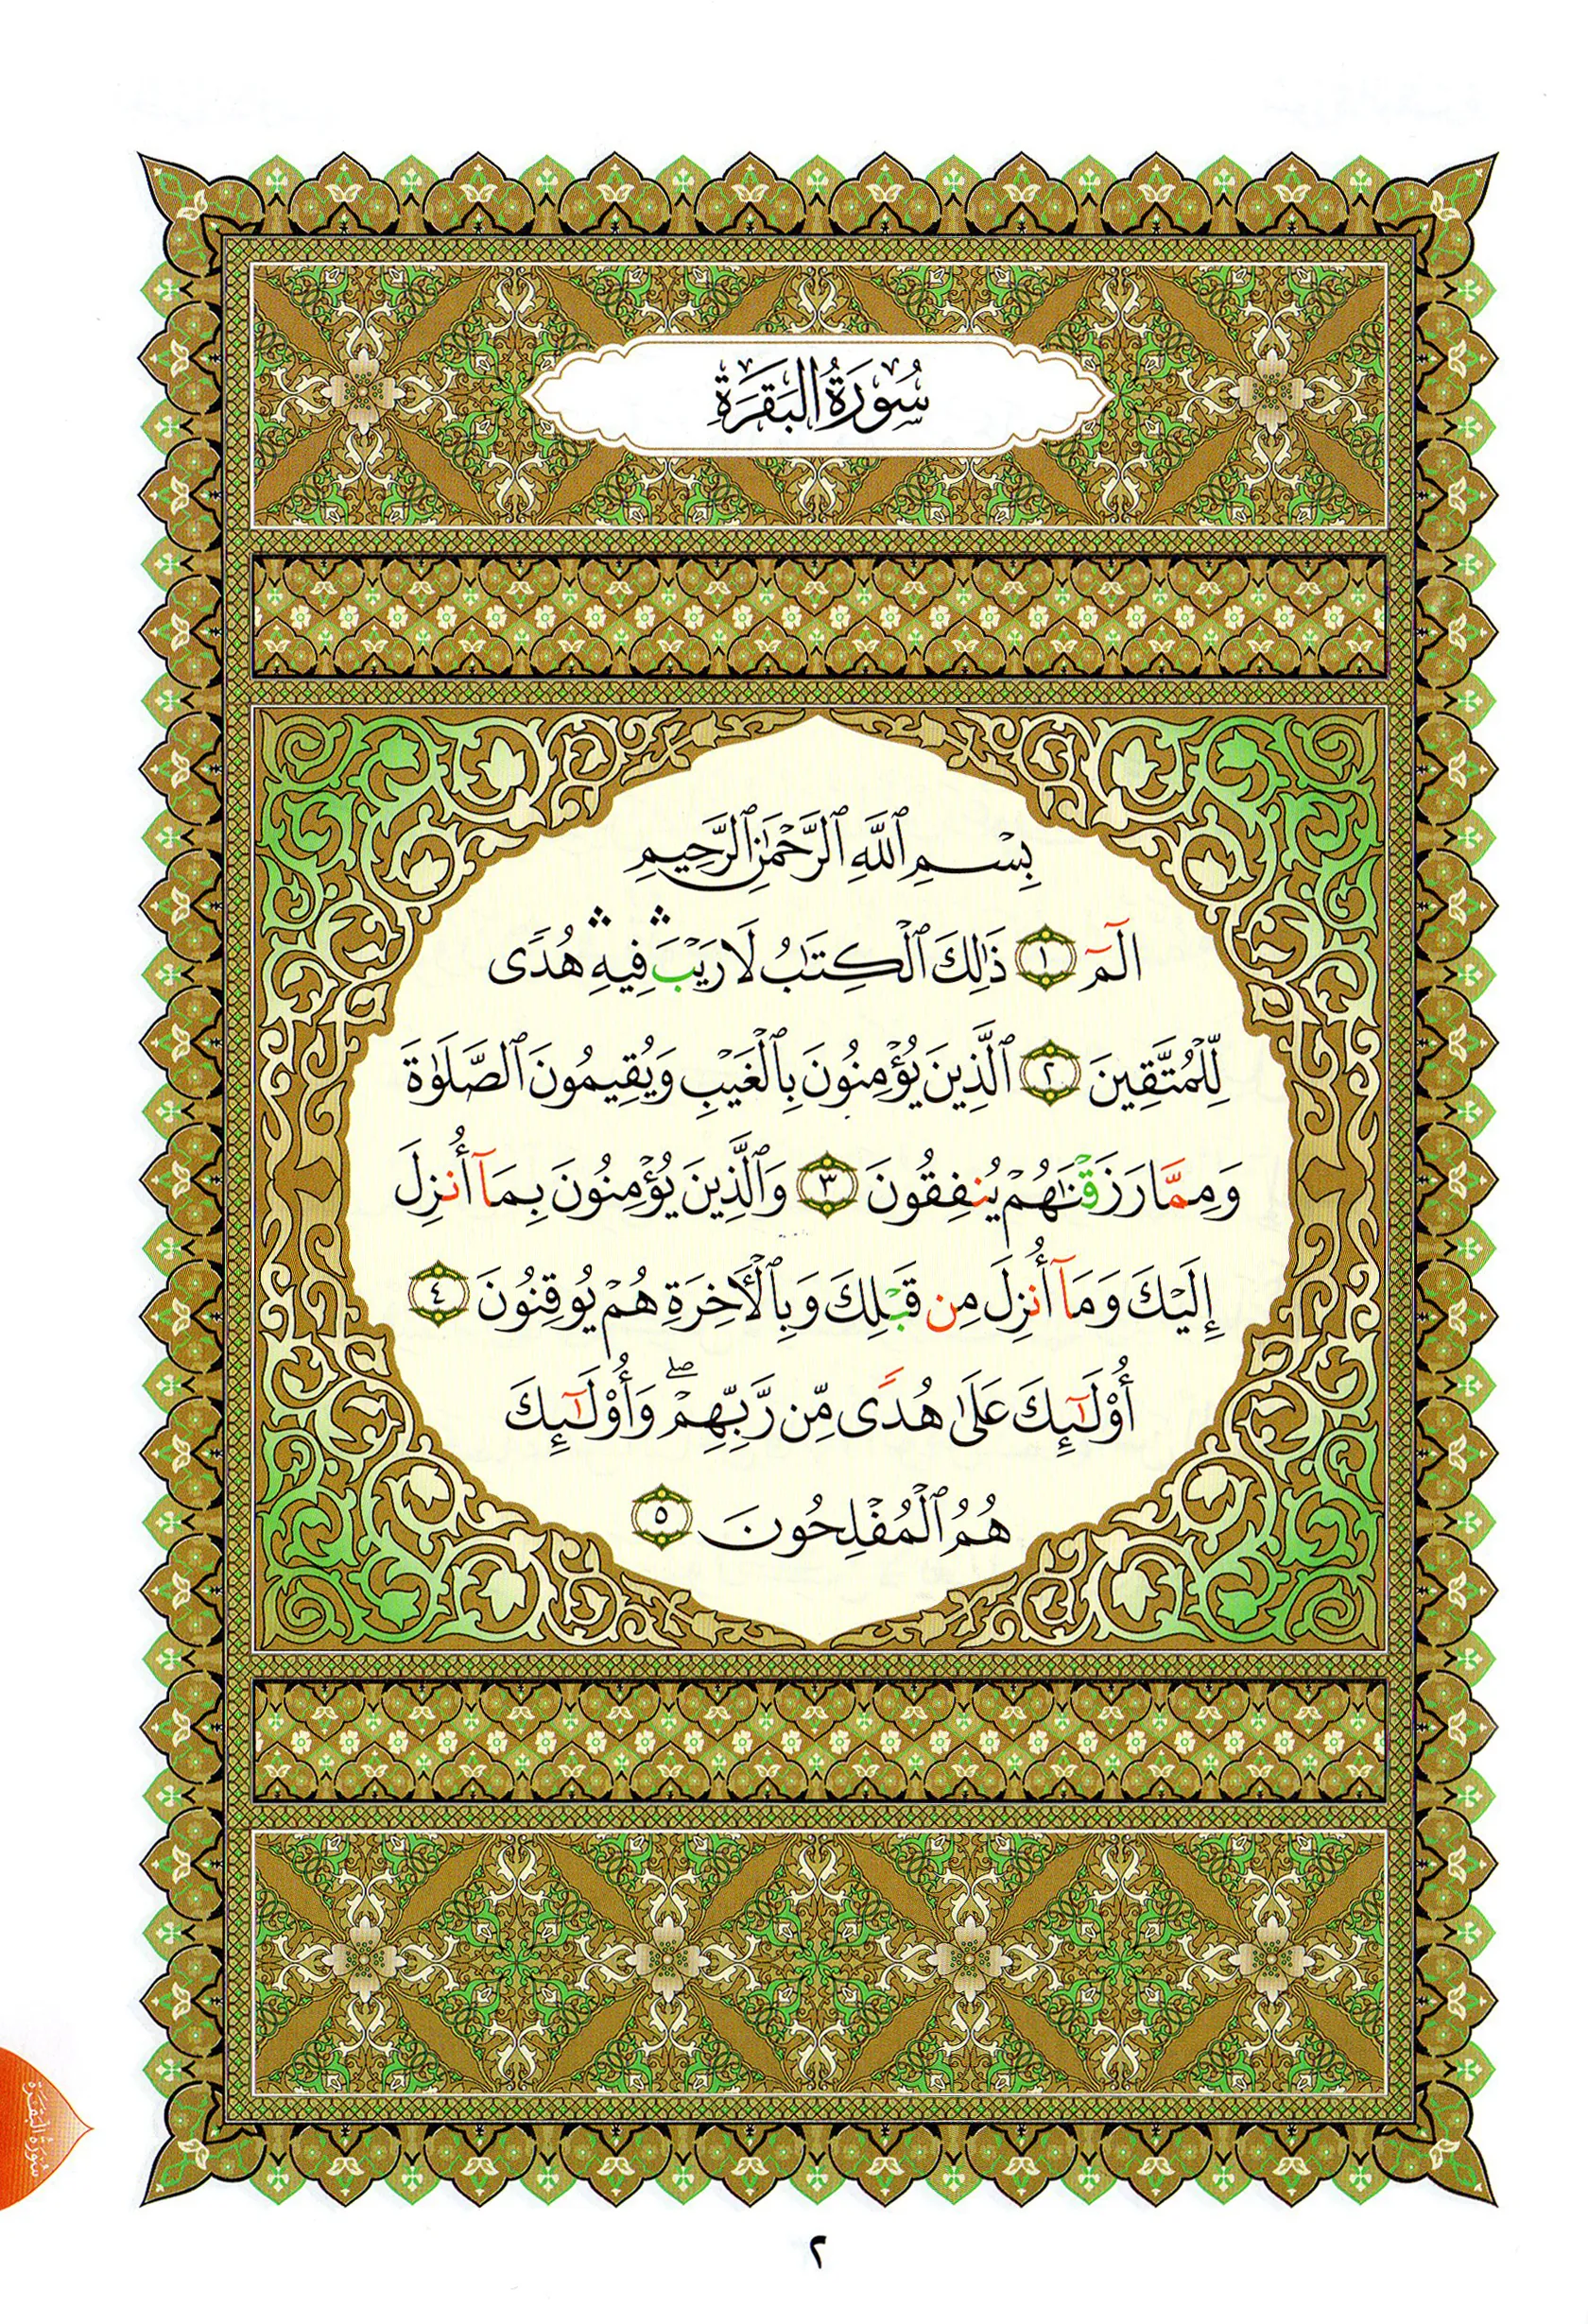 سُورَةُ البَقَرَةِ
بِسْمِ ٱللَّهِ ٱلرَّحْمَٰنِ ٱلرَّحِيمِ
الٓمٓ ١ ذَٰلِكَ ٱلْكِتَٰبُ لَا رَيْبَ ۛ فِيهِ ۛ هُدًى
لِّلْمُتَّقِينَ ٢ ٱلَّذِينَ يُؤْمِنُونَ بِٱلْغَيْبِ وَيُقِيمُونَ ٱلصَّلَوٰةَ
وَمِمَّا رَزَقْنَٰهُمْ يُنفِقُونَ ٣ وَٱلَّذِينَ يُؤْمِنُونَ بِمَآ أُنزِلَ
إِلَيْكَ وَمَآ أُنزِلَ مِن قَبْلِكَ وَبِٱلْأَخِرَةِ هُمْ يُوقِنُونَ ٤
أُوْلَٰٓئِكَ عَلَىٰ هُدًى مِّن رَّبِّهِمْ ۖ وَأُوْلَٰٓئِكَ
هُمُ ٱلْمُفْلِحُونَ ٥
سُورَةُ البَقَرَةِ
٢